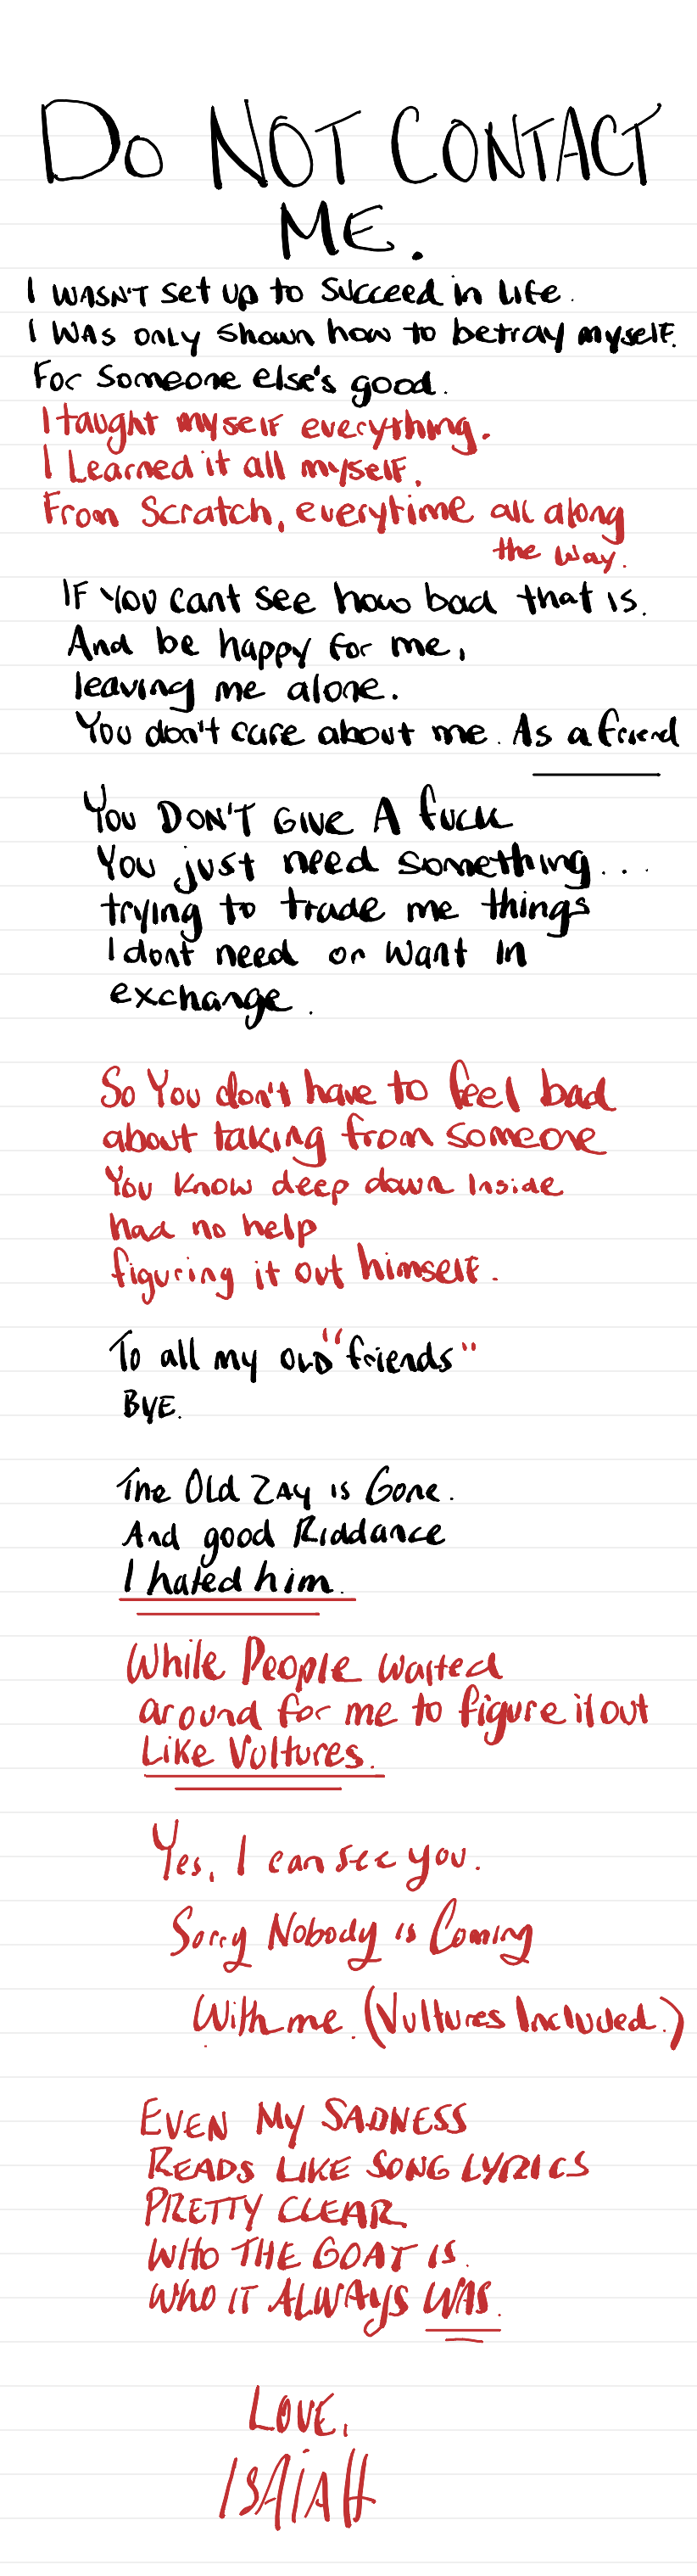 DO NOT CONTACT
ME.
I WASN'T set up to succeed in Life.
I WAS ONLY shown how to betray myself.
For someone else's good.
I taught myself everything.
I Learned it all myself.
From Scratch, everytime all along
the way.
IF YOU cant see how bad that is.
And be happy for me,
leaving me alone.
You don't care about me. As a friend
You DON'T GIVE A fuck
You just need something...
trying to trade me things
I dont need or want in
exchange.
So You don't have to feel bad
about taking from someone
You know deep down Inside
had no help
figuring it out himself.
To all my OLD "friends"
BYE.
The Old ZAY is Gone.
And good Riddance
I hated him.
While People waited
around for me to figure it out
Like Vultures.
Yes, I can see you.
Sorry Nobody is Coming
With me. (Vultures Included.)
EVEN MY SADNESS
READS LIKE SONG LYRICS
PRETTY CLEAR
WHO THE GOAT IS.
WHO IT ALWAYS WAS.
LOVE,
ISAIAH